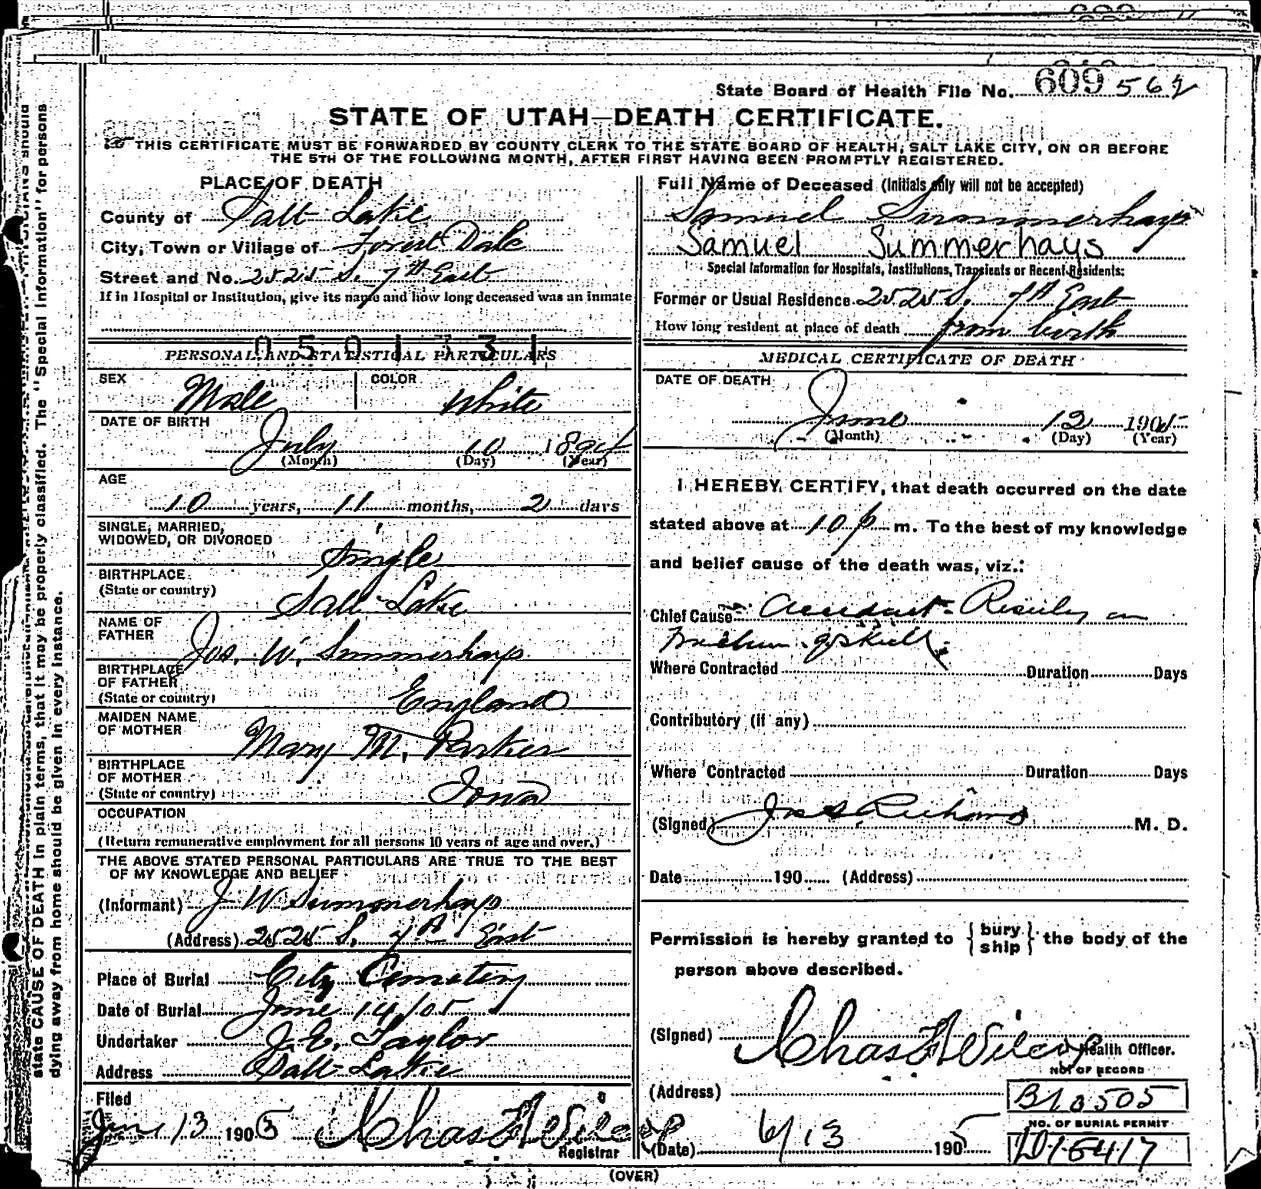 State Board of Health File No. 609 562
STATE OF UTAH—DEATH CERTIFICATE.
THIS CERTIFICATE MUST BE FORWARDED BY COUNTY CLERK TO THE STATE BOARD OF HEALTH, SALT LAKE CITY, ON OR BEFORE
THE 5TH OF THE FOLLOWING MONTH, AFTER FIRST HAVING BEEN PROMPTLY REGISTERED.
PLACE OF DEATH
County of Salt Lake
City, Town or Village of Forest Dale
Street and No. 2525 S. 7th East
If in Hospital or Institution, give its name and how long deceased was an inmate
0501731
PERSONAL AND STATISTICAL PARTICULARS
SEX Male COLOR White
DATE OF BIRTH
July 10 1894
(Month) (Day) (Year)
AGE
10 years, 11 months, 2 days
SINGLE, MARRIED,
WIDOWED, OR DIVORCED Single
BIRTHPLACE
(State or country) Salt Lake
NAME OF
FATHER Jos. W. Summerhays
BIRTHPLACE
OF FATHER
(State or country) England
MAIDEN NAME
OF MOTHER Mary M. Parker
BIRTHPLACE
OF MOTHER
(State or country) Iowa
OCCUPATION
(Return remunerative employment for all persons 10 years of age and over.)
THE ABOVE STATED PERSONAL PARTICULARS ARE TRUE TO THE BEST
OF MY KNOWLEDGE AND BELIEF
(Informant) J W Summerhays
(Address) 2525 S. 7th East
Place of Burial City Cemetery
Date of Burial June 14/05
Undertaker J. E. Taylor
Address Salt Lake
Filed
June 13 1905 Chas F Wilcox
Registrar
Full Name of Deceased (Initials only will not be accepted)
Samuel Summerhays
Samuel Summerhays
Special Information for Hospitals, Institutions, Transients or Recent Residents:
Former or Usual Residence 2525 S. 7th East
How long resident at place of death from birth
MEDICAL CERTIFICATE OF DEATH
DATE OF DEATH
June 12 1905
(Month) (Day) (Year)
I HEREBY CERTIFY, that death occurred on the date
stated above at 10 p m. To the best of my knowledge
and belief cause of the death was, viz.:
Chief Cause Accident
Skull
Where Contracted Duration Days
Contributory (if any)
Where Contracted Duration Days
(Signed) Jos S. Richards M. D.
Date 190 (Address)
Permission is hereby granted to { bury
ship } the body of the
person above described.
(Signed) Chas F Wilcox
Health Officer.
(Address)
NO. OF RECORD
B10505
(Date) 6/13 1905
NO. OF BURIAL PERMIT
D16417
(OVER)
state CAUSE OF DEATH in plain terms, that it may be properly classified. The "Special Information" for persons
dying away from home should be given in every instance.